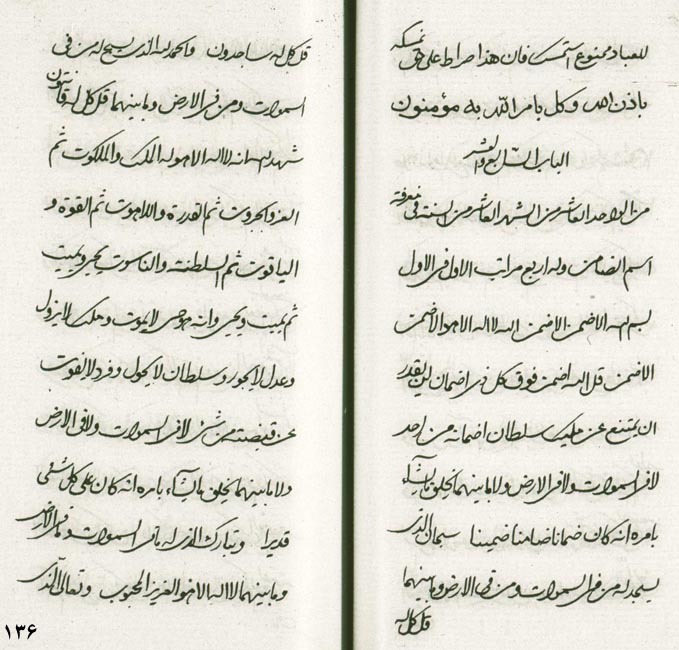 للعباد ممنوع استمسك فان هذا صراط على حق تمسكه
باذن الله وكل بامر الله به مؤمنون
الباب السابع والعشر
من الواحد العاشر من الشهر العاشر من السنة في معرفة
اسم الضامن وله اربع مراتب الاول في الاول
بسم الله الاضمن الاضمن الله لا اله الا هو الاضمن
الاضمن قل الله اضمن فوق كل ذي اضمان لن يقدر
ان يمتنع عن مليك سلطان اضمانه من احد
لا في السموات ولا في الارض ولا ما بينهما يخلق ما يشاء
بامره انه كان ضمانا ضامنا ضمينا سبحان الذي
يسجد له من في السموات ومن في الارض وما بينهما
قل كل له
قل كل له ساجدون والحمد لله الذي يسبح له من في
السموات ومن في الارض وما بينهما قل كل له قانتون
شهد الله انه لا اله الا هو له الملك والملكوت ثم
العز والجبروت ثم القدرة واللاهوت ثم القوة و
الياقوت ثم السلطنة والناسوت يحيي ويميت
ثم يميت ويحيي وانه هو حي لا يموت وملك لا يزول
وعدل لا يجور وسلطان لا يحول وفرد لا يفوت
عن قبضته من شئ لا في السموات ولا في الارض
ولا ما بينهما يخلق ما يشاء بامره انه كان على كل شئ
قديرا وتبارك الذي له ما في السموات وما في الارض
وما بينهما لا اله الا هو العزيز المحبوب وتعالى الذي
۱۳۶